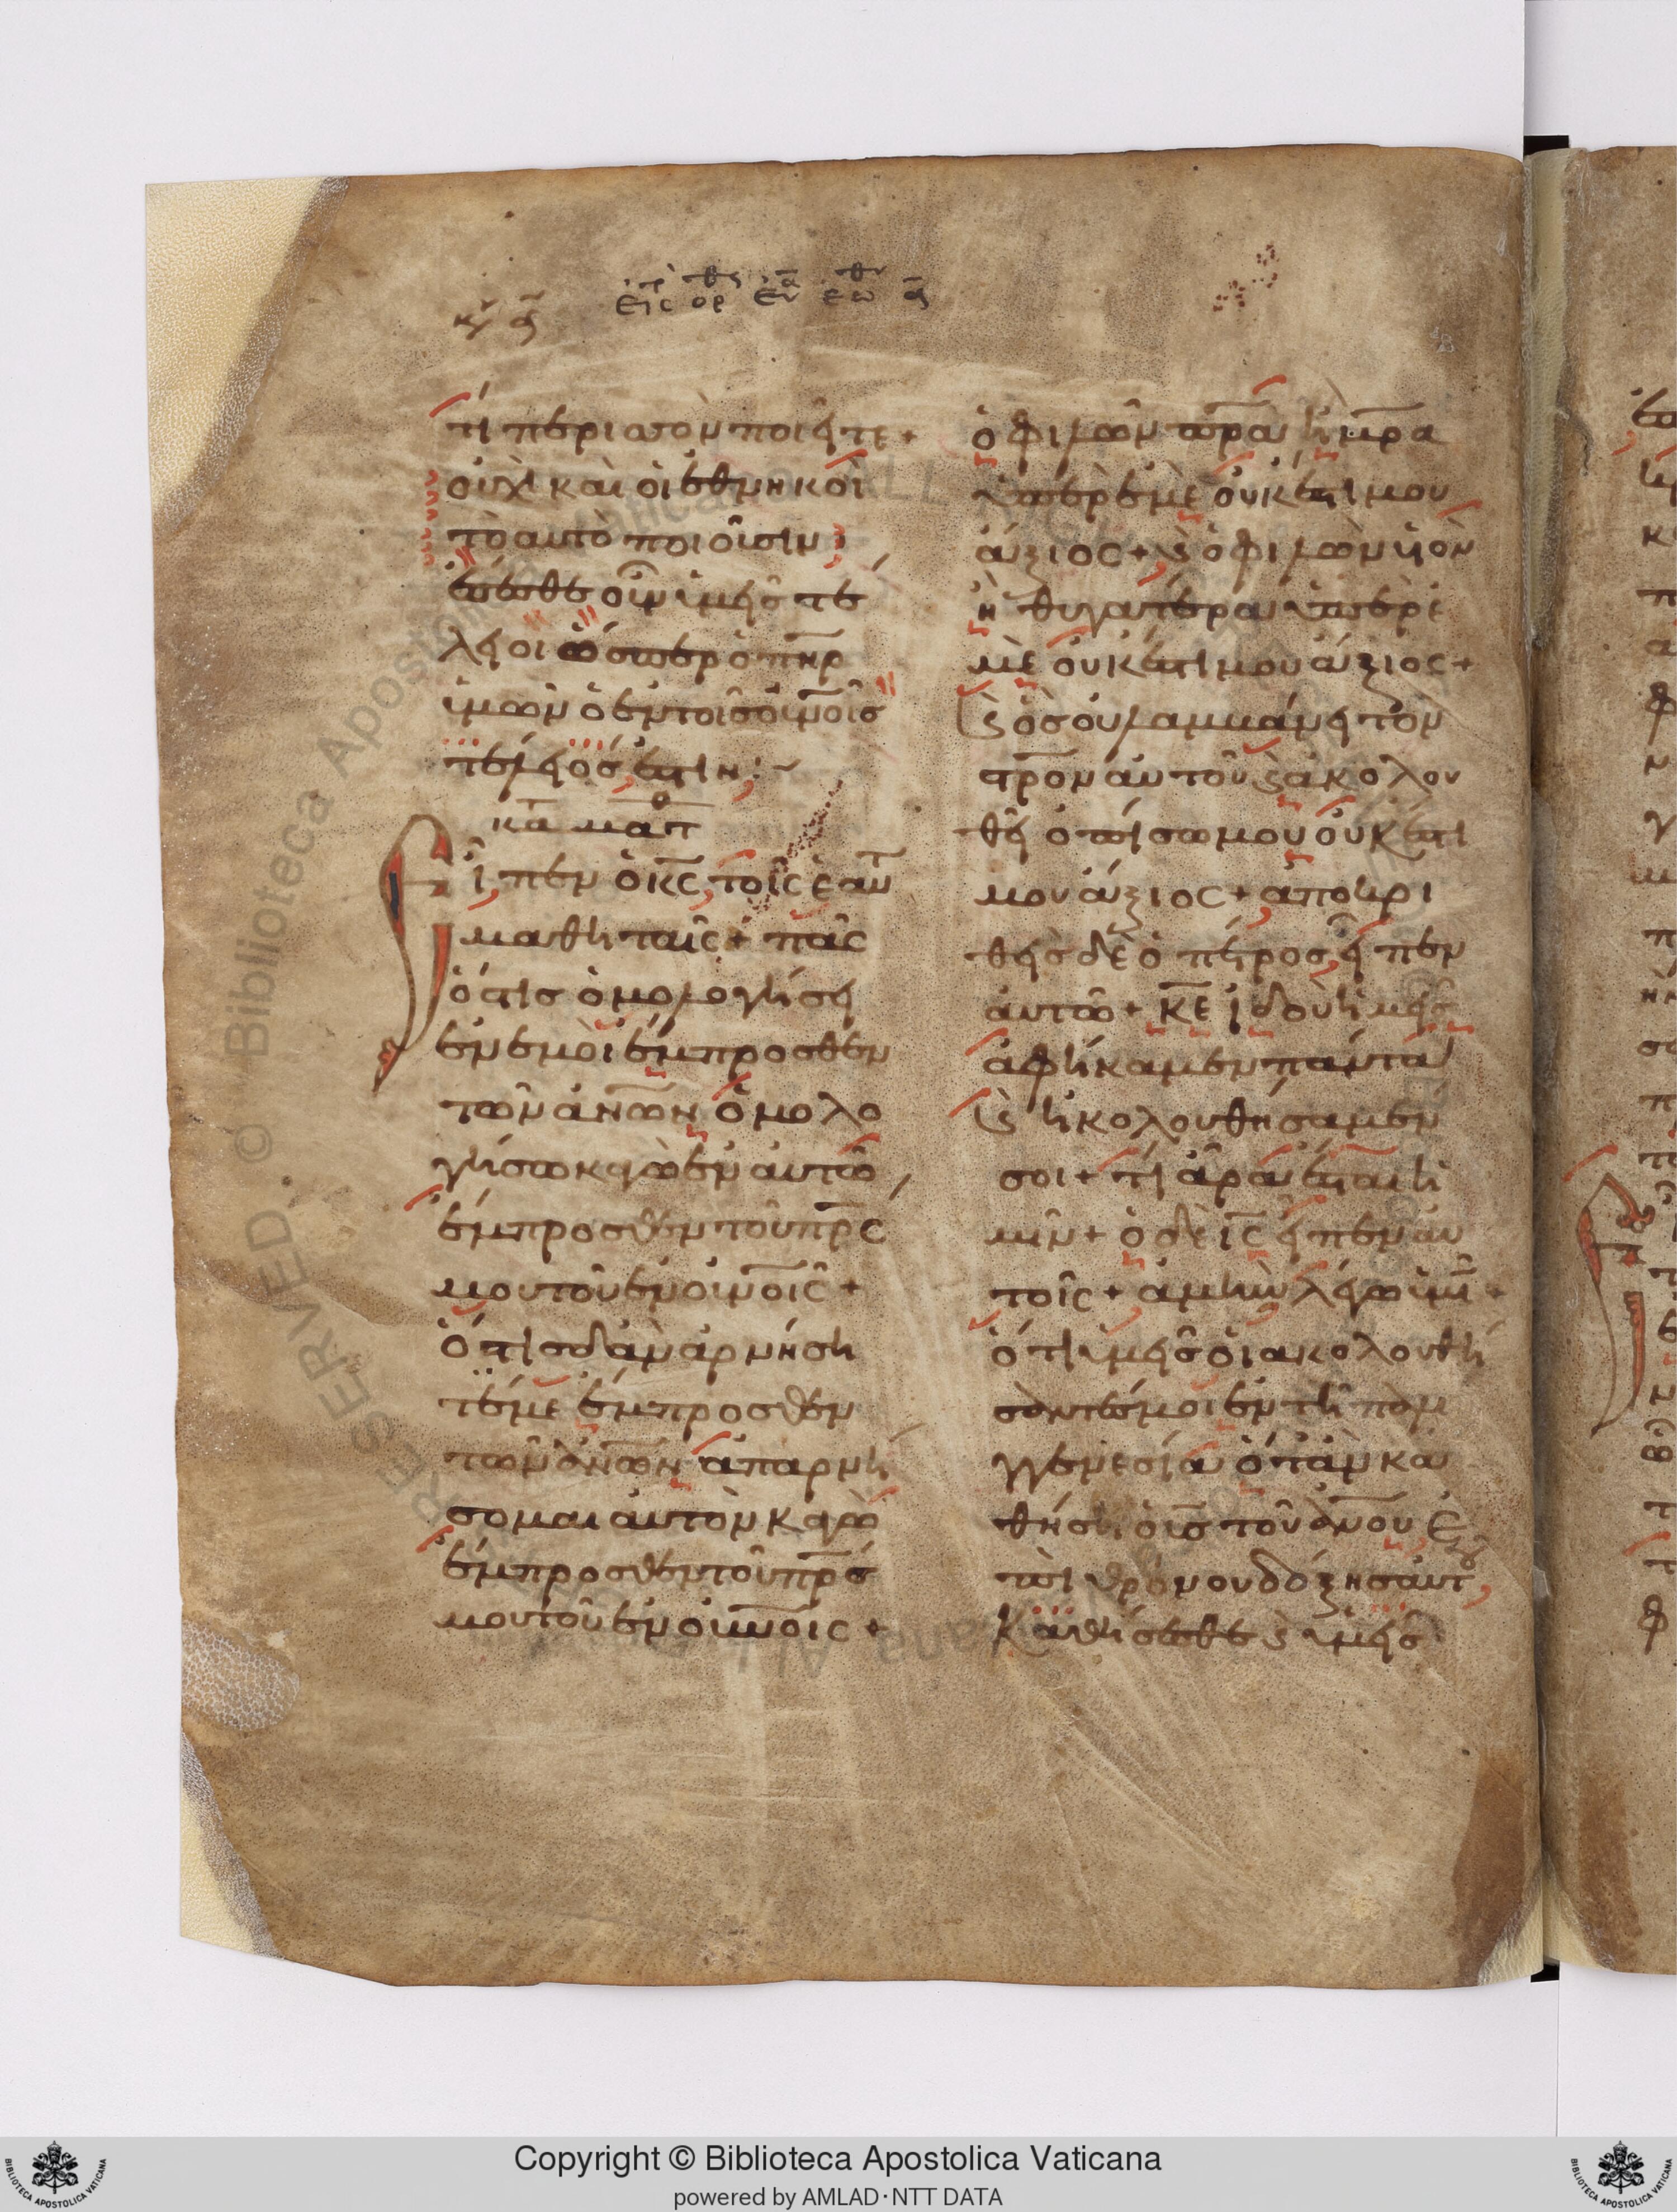 κυ α
εις ορθς ευα εωθ α
τί περιασὸν ποιῆτε+
οὐχὶ καὶ οἱ ἐθνηκοὶ
τὸ αυτὸ ποιοῦσιν;
ἔσεσθε οὖν ὑμῆς τέ
ληοι ὥσπερ ὁ πηρ
ὑμῶν ὁ ἐν τοῖς οὐνοῖς
τέληός ἐστιν:~
κα ματθ
Εἶπεν ὁ κς τοῖς ἑαυ
μαθηταῖς+ πᾶς
ὅστις ὁμολογήσῃ
ἐν ἐμοὶ ἔμπροσθεν
τῶν ἀνων ὁμολο
γήσω καγὼ ἐν αυτῶ
ἔμπροσθεν τοῦ πρς
μου τοῦ ἐν οὐνοῖς+
ὅστις δ' ἂν ἀρνήση
τέ με ἔμπροσθεν
τῶν ἀνων ἀπαρνή
σομαι αυτὸν καγὼ
ἔμπροσθεν τοῦ πρς
μου τοῦ ἐν οὐνοις+
ὁ φιλῶν πρα ἢ μρα
ὑπὲρ ἐμὲ οὐκ ἔστι μου
ἄξιος+ ϗ ὁ φιλῶν υἱὸν
ἢ θυγατέρα ὑπὲρ ἐ
μὲ οὐκ ἔστι μου ἄξιος+
ϗ ὃς οὐ λαμμάνη τὸν
στρον αυτοῦ ϗ ἀκολου
θῆ ὀπίσω μου οὐκ ἔστι
μου ἄξιος+ ἀποκρι
θῆς δὲ ὁ πέτρος ἦπεν
αυτῶ+ κε ἰδοὺ ἡμῆς
ἀφήκαμεν πάντα
ϗ ἠκολουθήσαμεν
σοι+ τί ἄρα ἔσται ἡ
μῖν+ ὁ δὲ ις ἦπεν αυ
τοῖς+ ἀμὴν λέγω ὑμῖ+
ὅτι ὑμῆς οἱ ἀκολουθή
σαντές μοι ἐν τῆ παλι
γγενεσία ὅταν κα
θήση ὁ υς τοῦ ἀνου ἐ
πὶ θρόνου δόξης αυτου
καθήσεσθε ϗ ὑμῆς
Copyright © Biblioteca Apostolica Vaticana
powered by AMLAD·NTT DATA